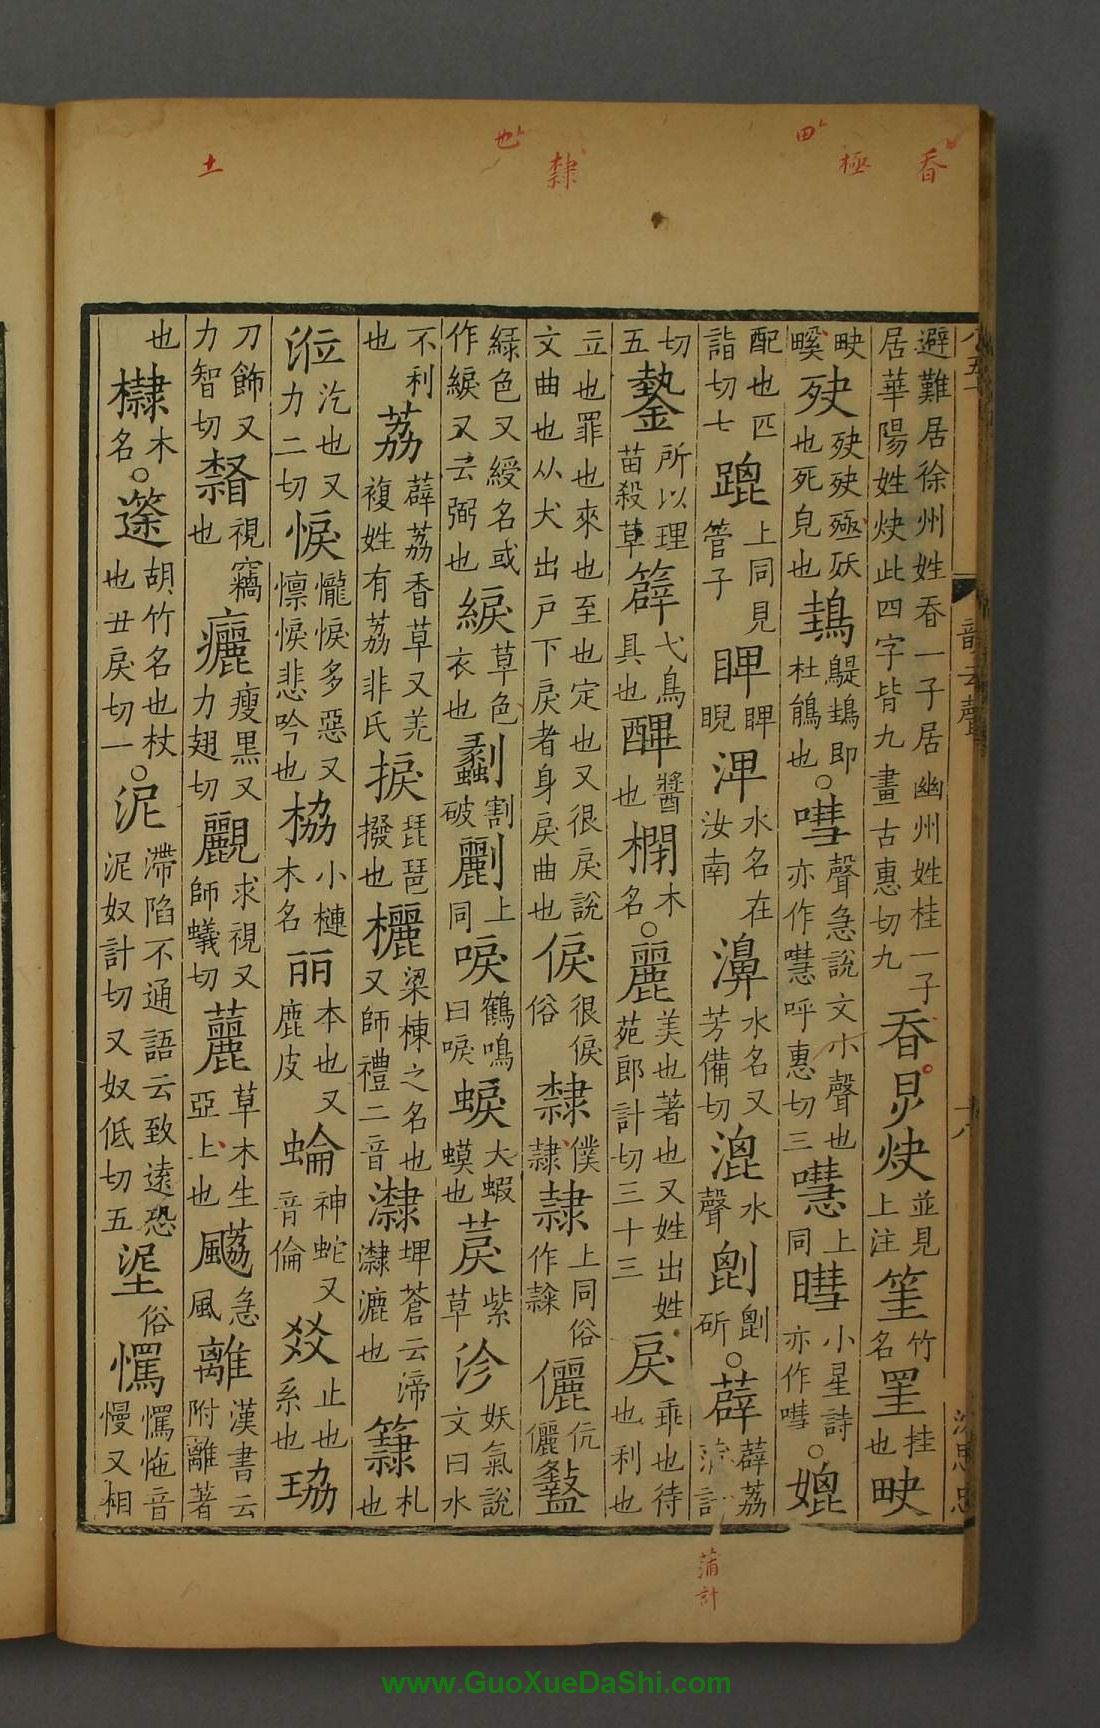 避難居徐州姓吞一子居幽州姓桂一子居華陽姓炔此四字皆九畫古惠切九 吞 炅 炔 並見上注 筀 竹名 罣 挂也 㽟
㽟畦 殃也死皃也 鴂 鶗鴂即杜鵑也○嘒聲急說文小聲也亦作嚖呼惠切三 嚖 上同 暳 小星詩亦作嘒○媲
配也匹詣切七 䠘 上同見管子 睥 睥睨 淠 水名在汝南 濞 水名又芳備切 潎 水聲 㓟 㓟斫○薜 薜荔蒲計
切五 鐾 所以理苗殺草 䉾 弋鳥具也 䤗 醬也 㯅 木名○麗 美也著也又姓出姓苑郎計切三十三 戾 乖也待也利也
立也罪也來也至也定也又很戾說文曲也从犬出戶下戾者身戾曲也 㑦 很㑦俗 隸 僕隸 隷 上同俗作𨽻 儷 伉儷 盭
綠色又綬名或作綟又云弼也 綟 草色衣也 蠫 割破 劙 上同 唳 鶴鳴曰唳 蜧 大蝦蟆也 䓞 紫草 沴 妖氣說文曰水
不利也 荔 薜荔香草又羌複姓有荔非氏 捩 琵琶撥也 欐 梁棟之名也又師禮二音 㶗 埤蒼云渧㶗漉也 䉫 札也
涖 汔也又力二切 悷 㦨悷多惡又懍悷悲吟也 栛 小槤木名 丽 本也又鹿皮 蜦 神蛇又音倫 㸚 止也系也 珕
刀飾又力智切 䚕 視也 癘 瘦黑又力翅切 觀 求視又師蟻切 䕻 草木生亞上也 䬆 急風 離 漢書云附離著
也 㰀 木名○䈜 胡竹名也杖也丑戾切一○泥 滯陷不通語云致遠恐泥奴計切又奴低切五 埿 俗 㦐 㦐怉音慢又相
韻去聲
吞
極
田
隸
也
土
蒲計
www.GuoXueDaShi.com